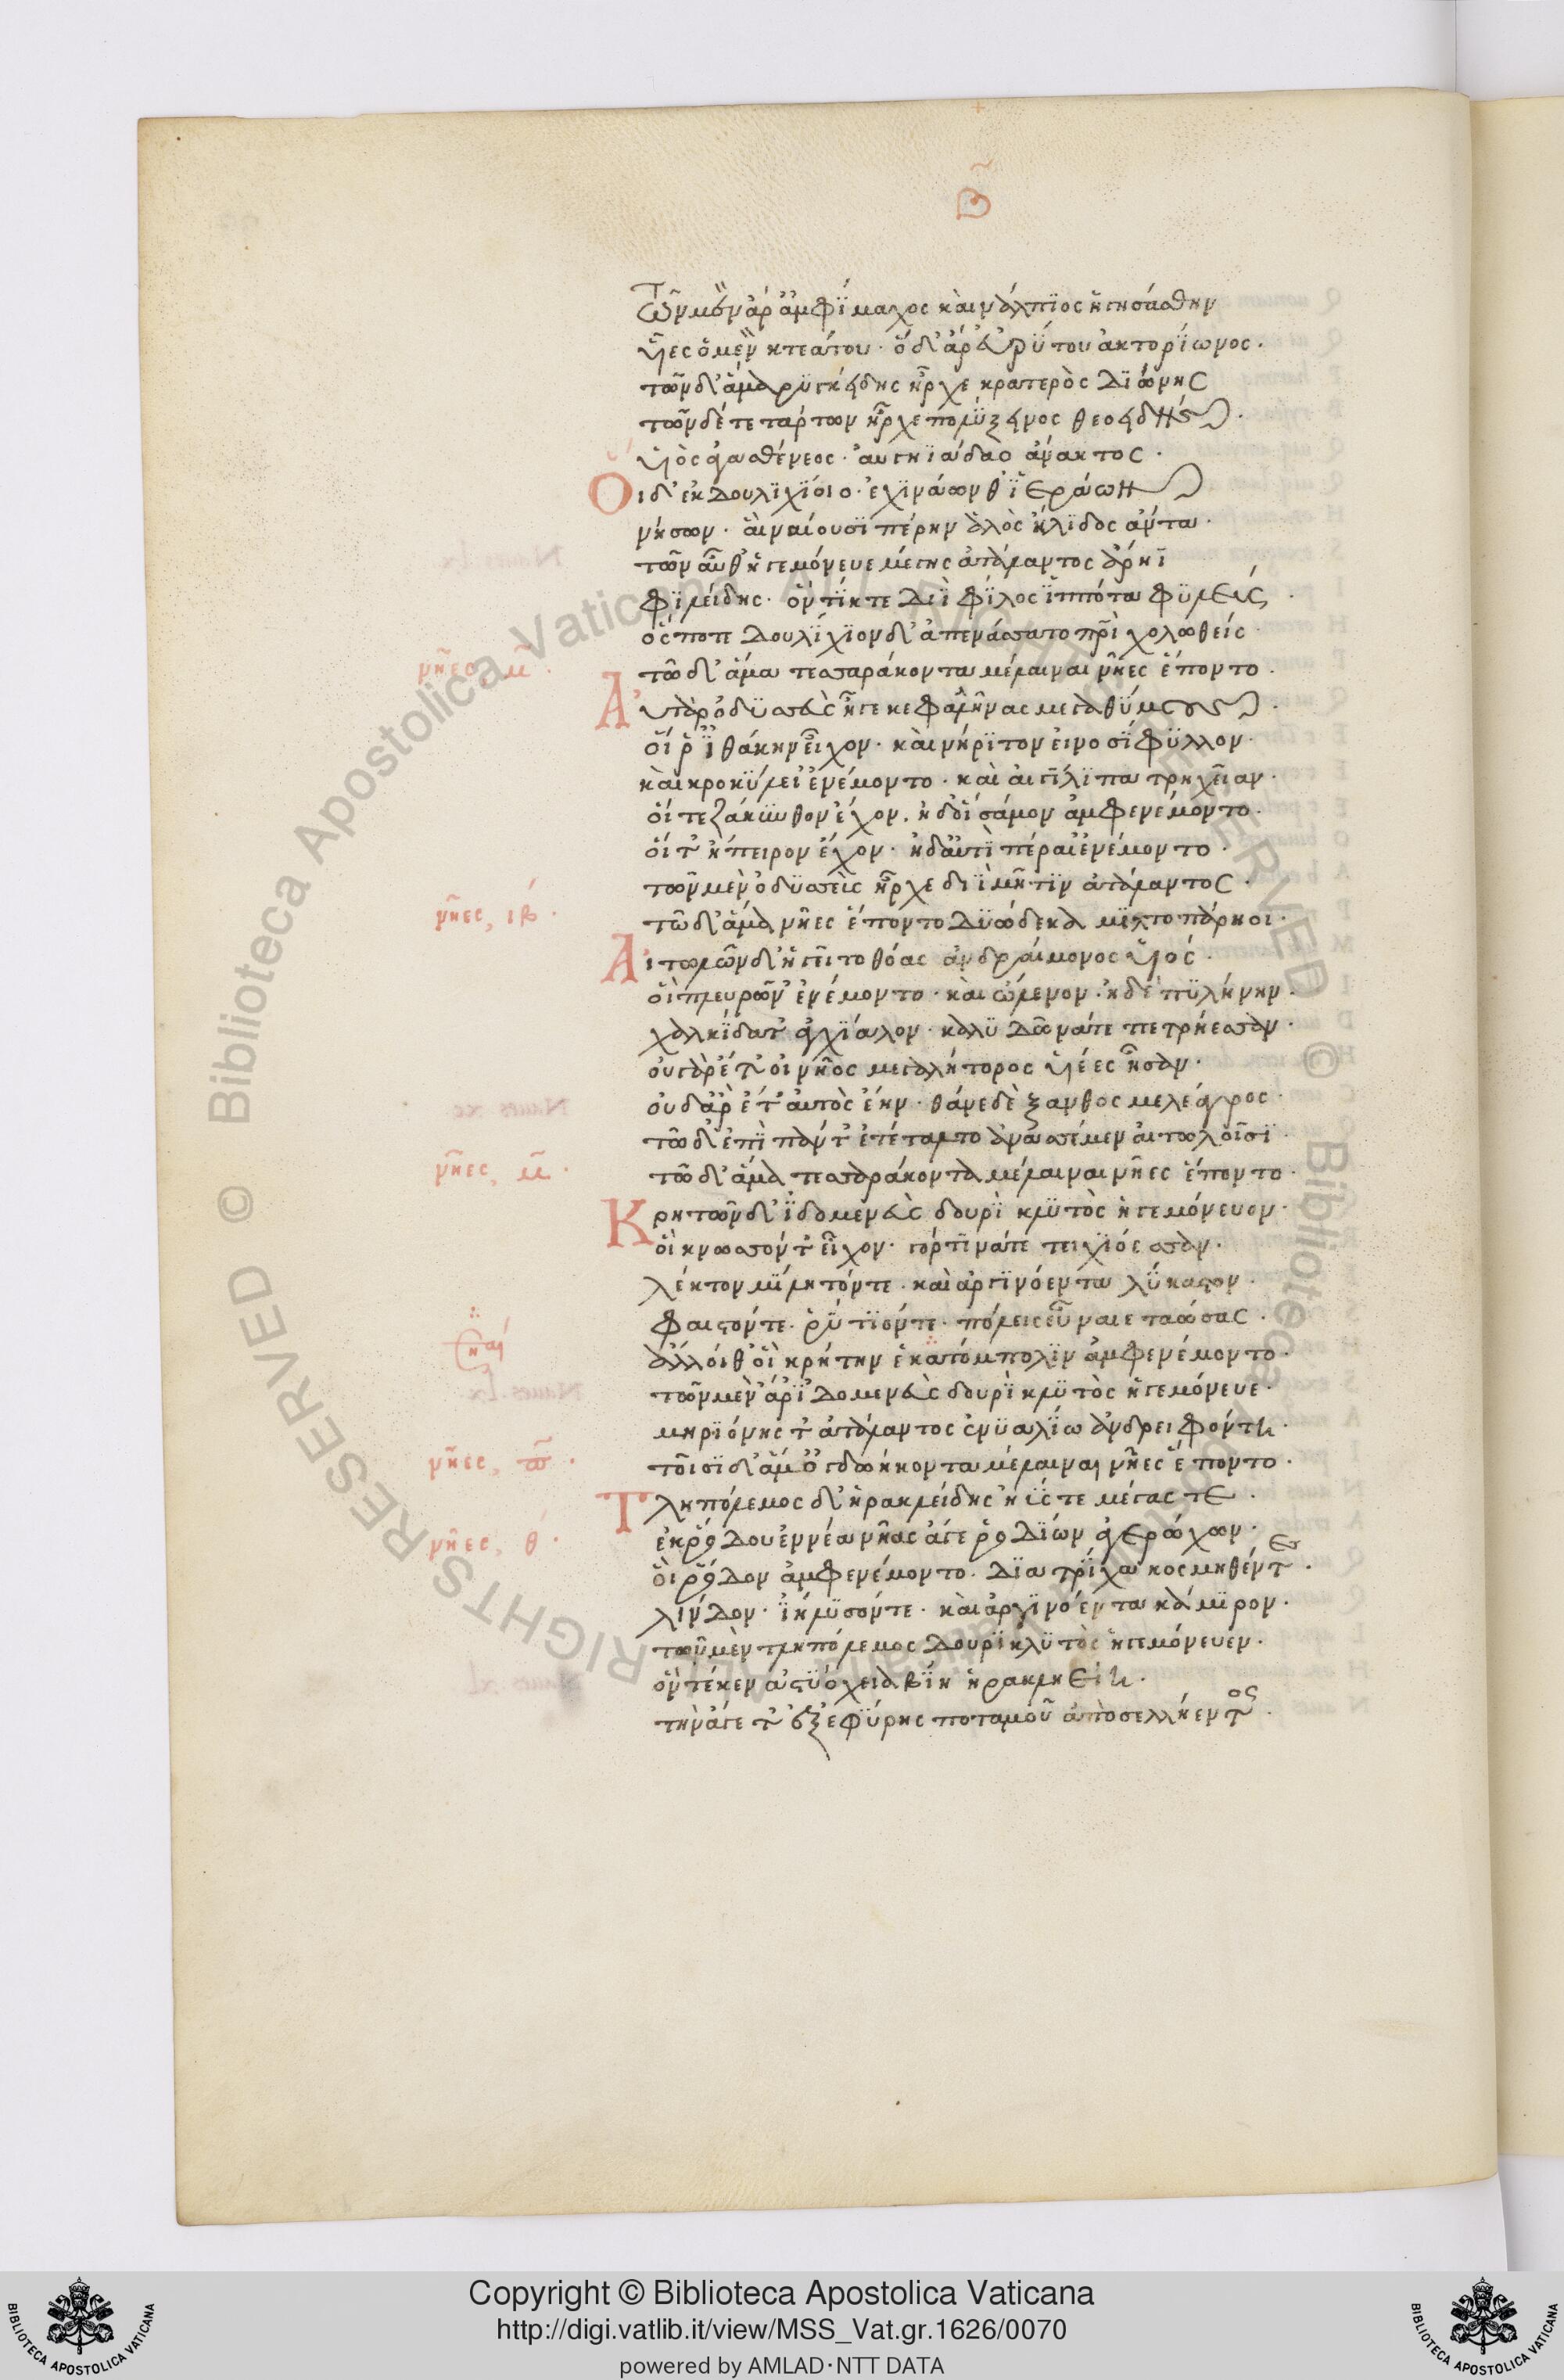 β
Τῶν μὲν ἄρ ἀμφίμαχος καὶ νάλπϊος ἡγησάσθην
ὗες ὁ μὲν κτεάτου· ὁ δ' ἄρ εὐρύτου ἀκτορίωνος.
τῶν δ' ἀμαρυγκείδης ἦρχε κρατερὸς διώρης
τῶν δὲ τετάρτων ἦρχε πολύξεινος θεοειδής.
υἱὸς ἀγασθένεος· αὐγηϊάδαο ἄνακτος.
Οἱ δ' ἐκ δουλιχίοιο· ἐχινάων θ' ἱεράων
νήσων· αἳ ναίουσι πέρην ἁλὸς ἤλιδος ἄντα.
τῶν αὖθ' ἡγεμόνευε μέγης ἀτάλαντος ἄρηϊ
φυλείδης· ὃν τίκτε διῒ φίλος ἱππότα φυλεύς.
ὅς ποτε δουλίχιον δ' ἀπενάσσατο πρὶ χολωθείς.
νῆες μ̅.
τῶ δ' ἅμα τεσσαράκοντα μέλαιναι νῆες ἕποντο.
Αὐτὰρ ὀδυσσεὺς ἦγε κεφαλῆνας μεγαθύμους.
οἵ ῥ' ἰθάκην εἶχον· καὶ νήριτον εἰνοσίφυλλον.
καὶ κροκύλει ἐνέμοντο· καὶ αἰγίλιπα τρηχεῖαν.
οἵ τε ζάκυνθον ἔχον. ἠδ' οἳ σάμον ἀμφενέμοντο.
οἵ τ' ἤπειρον ἔχον· ἠδ' ἀντιπέραι ἐνέμοντο.
τῶν μὲν ὀδυσσεὺς ἦρχε διῒ μῆτιν ἀτάλαντος.
νῆες, ιβ.
τῶ δ' ἅμα νῆες ἕποντο δυώδεκα μιλτοπάρηοι.
Αἰτωλῶν δ' ἡγεῖτο θόας ἀνδραίμονος υἱός.
οἳ πλευρῶν' ἐνέμοντο· καὶ ὤλενον· ἠδὲ πυλήνην.
χαλκίδα τ' ἀγχίαλον· καλυδῶνά τε πετρήεσσαν.
οὐ γὰρ ἔτ' οἰνῆος μεγαλήτορος υἱέες ἦσαν.
οὐδ' ἄρ ἔτ' αὐτὸς ἔην· θάνε δὲ ξανθος μελέαγρος.
τῶ δ' ἐπὶ πάντ' ἐτέταλτο ἀνασσέμεν αἰτωλοῖσι.
νῆες, μ̅.
τῶ δ' ἅμα τεσσαράκοντα μέλαιναι νῆες ἕποντο.
Κρητῶν δ' ἰδομενεὺς δουρὶ κλυτὸς ἡγεμόνευεν.
οἳ κνωσσόν τ' εἶχον· γόρτινά τε τειχιόεσσαν.
λέκτον μίλητόν τε· καὶ ἀργινόεντα λύκαστον.
φαιστόν τε· ῥύτιόν τε· πόλεις εὖ ναιεταώσας.
ἄλλοι θ' οἳ κρήτην ἑκατόμπολιν ἀμφενέμοντο.
τῶν μὲν ἄρ ἰδομενεὺς δουρὶ κλυτὸς ἡγεμόνευε.
μηριόνης τ' ἀτάλαντος ἐνυαλίω ἀνδρειφόντη.
νῆες, π̅.
τοῖσι δ' ἅμ' ὀγδώκοντα μέλαιναι νῆες ἕποντο.
Τληπόλεμος δ' ἡρακλείδης ἠΰς τε μέγας τε.
νῆες, θ.
ἐκ ῥόδου ἐννέα νῆας ἄγε ῥοδίων ἀγερώχων.
οἳ ῥόδον ἀμφενέμοντο· δια τρίχα κοσμηθέντες.
λίνδον· ἰηλυσόν τε· καὶ ἀργινόεντα κάμιρον.
τῶν μὲν τληπόλεμος δουρὶ κλυτὸς ἡγεμόνευεν.
ὃν τέκεν ἀστυόχεια βίη ἡρακληείη.
τὴν ἄγε τ' ἐξ ἐφύρης ποταμοῦ ἀπὸ σελλήεντος.
Copyright © Biblioteca Apostolica Vaticana
http://digi.vatlib.it/view/MSS_Vat.gr.1626/0070
powered by AMLAD·NTT DATA